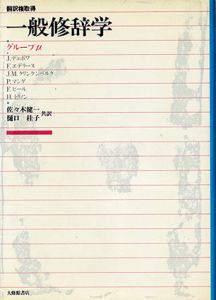 翻訳権取得
一般修辞学
グループμ
J.デュボワ
F.エデリーヌ
J.M.クリンケンベルク
P.マンゲ
F.ピール
H.トリノン
佐々木健一
樋口 桂子
共訳
大修館書店